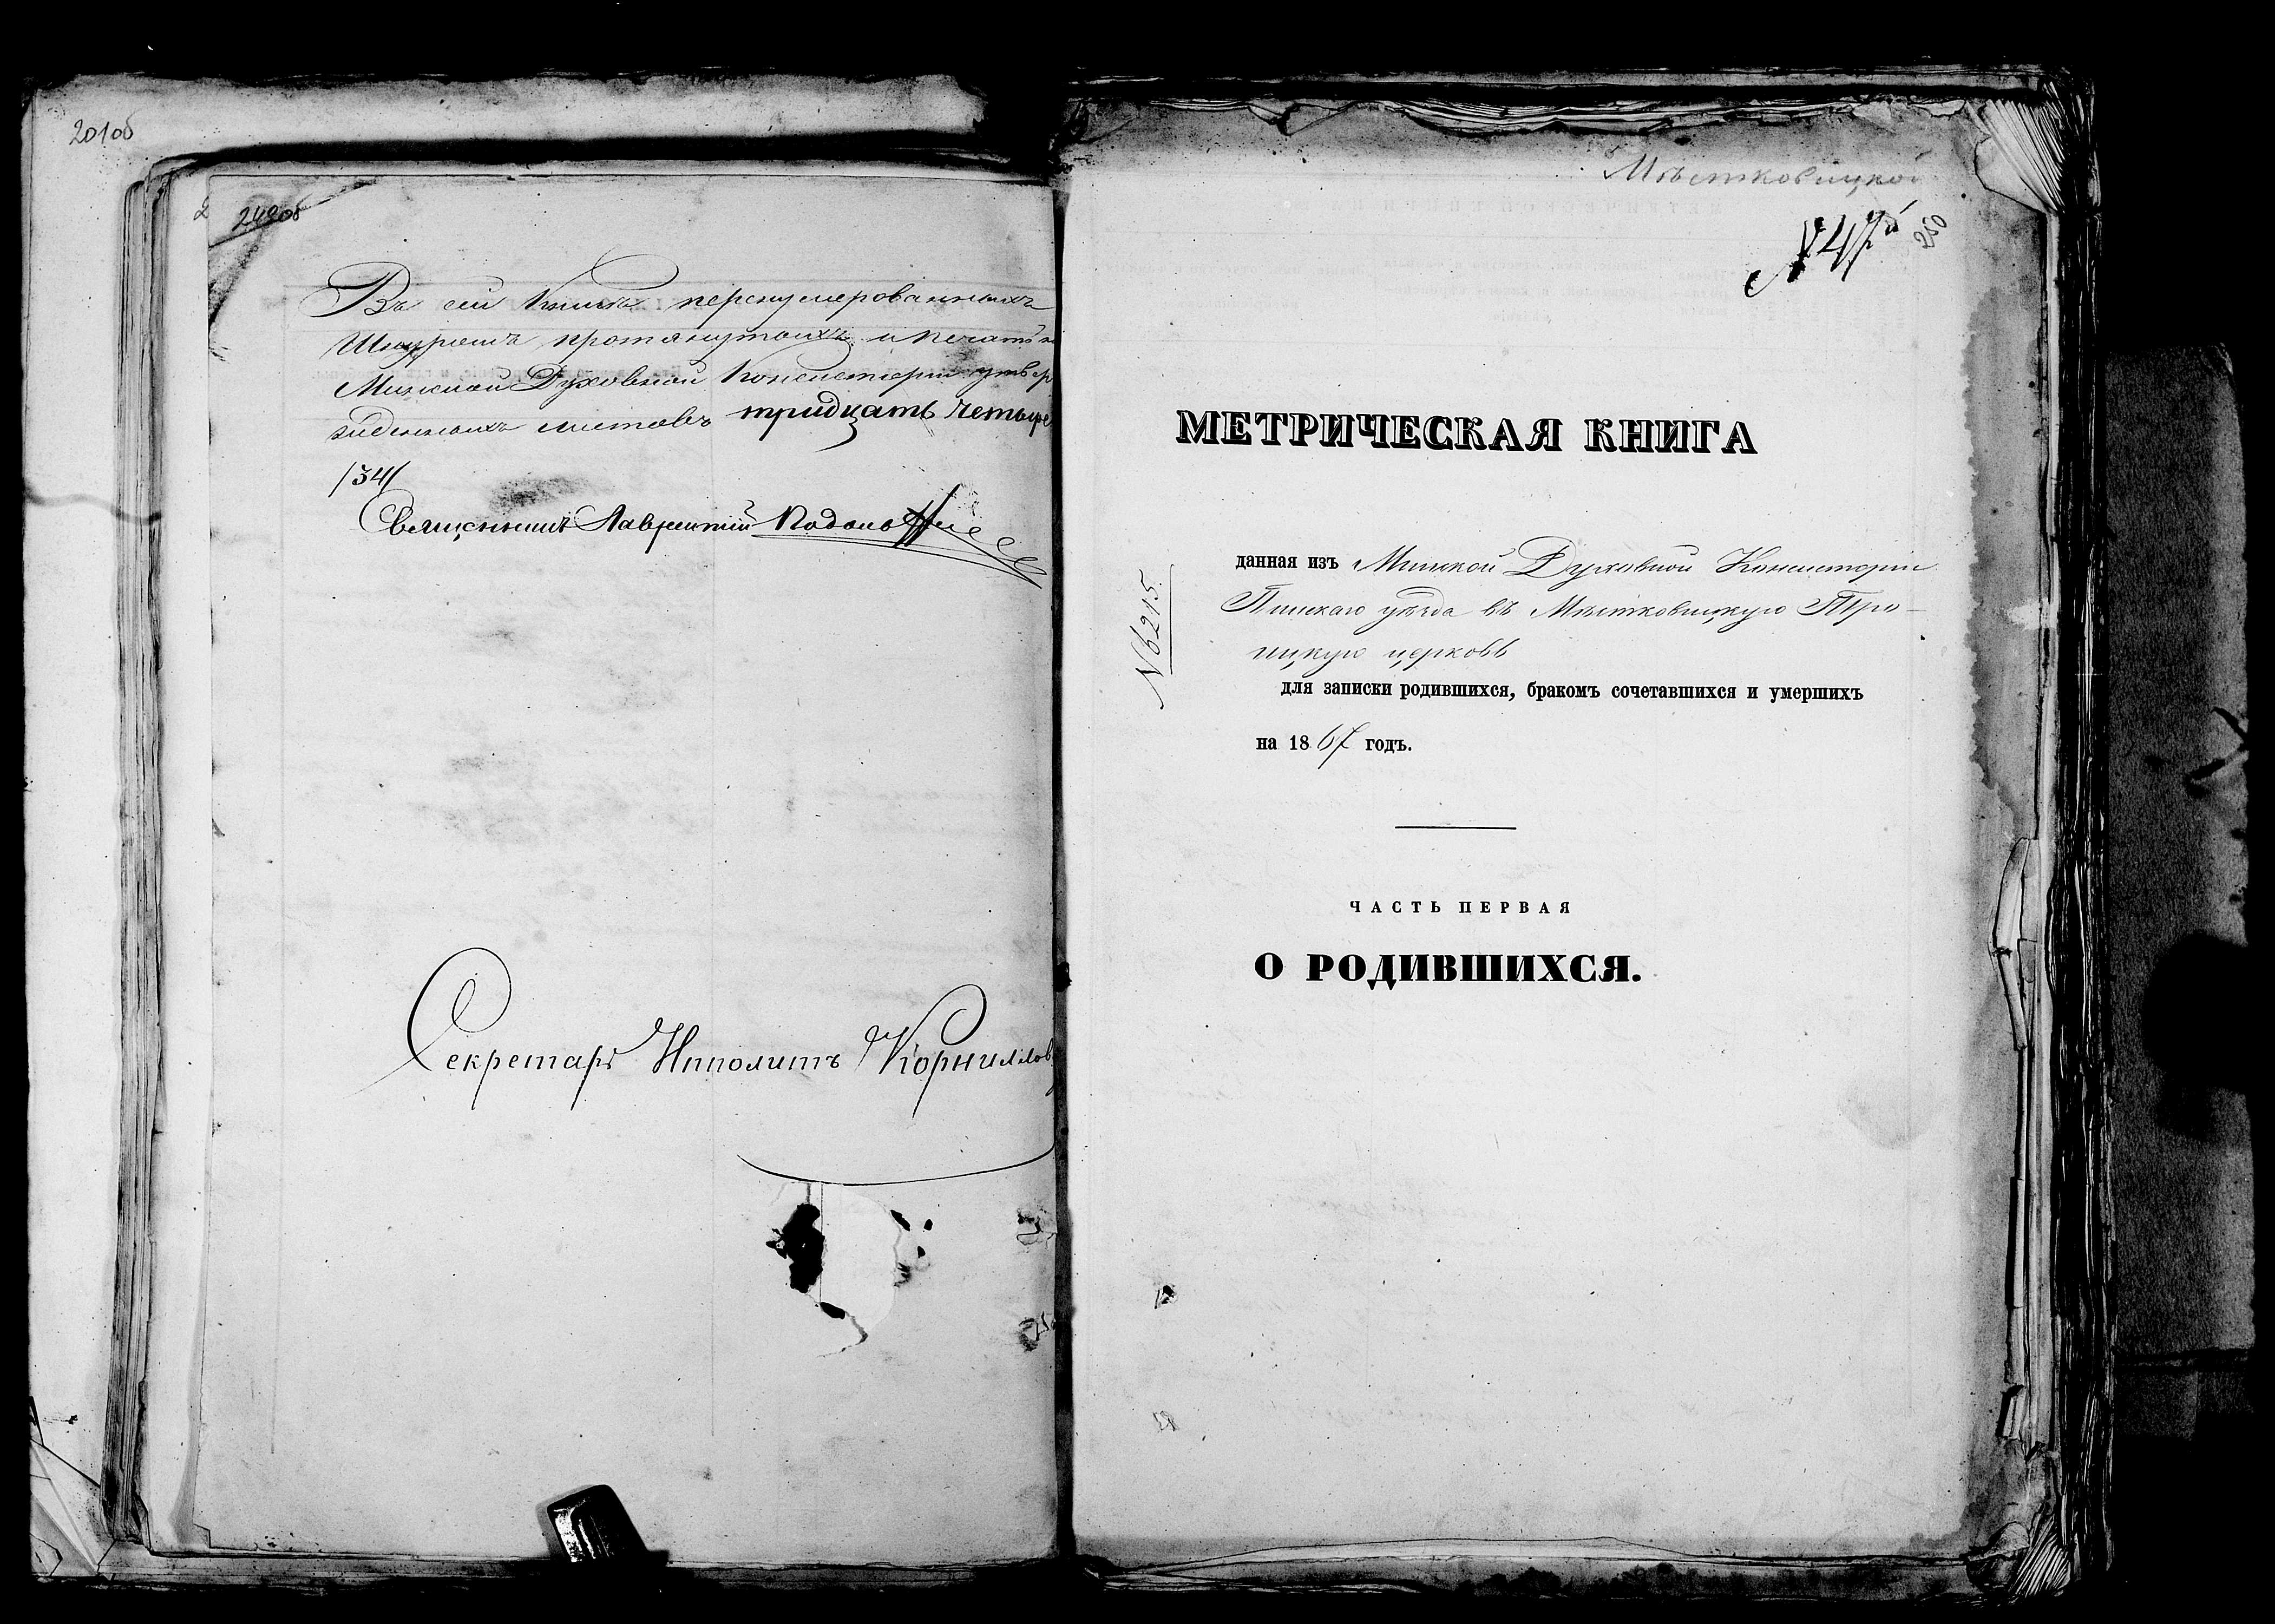 201об
249об
Въ сей Книгѣ перенумерованныхъ
Шнуромъ протянутыхъ и печатью
Минской Духовной Консисторіи утвер
жденныхъ листовъ тридцать четыре
/34/
Священникъ Лаврентій
Секретарь Ипполитъ Корниллов
Мѣстковицкой
№ 47й
250
МЕТРИЧЕСКАЯ КНИГА
данная изъ Минской Духовной Консисторіи
Пинскаго уѣзда въ Мѣстковицкую Тро-
ицкую церковь
№ 6215.
для записки родившихся, бракомъ сочетавшихся и умершихъ
на 1867 годъ.
ЧАСТЬ ПЕРВАЯ
О РОДИВШИХСЯ.